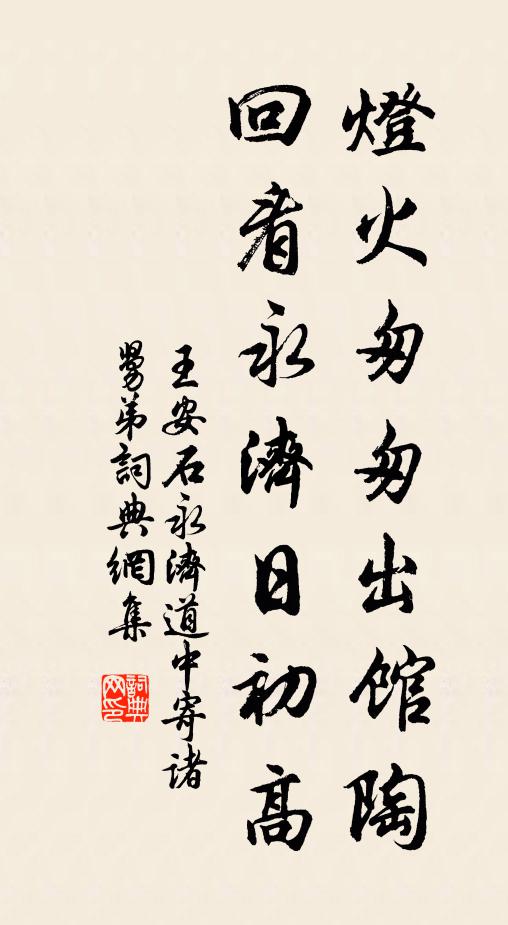 燈火匆匆出館陶
回看永濟日初高
王安石永濟道中寄諸
舅弟詞典網集
詞典网印